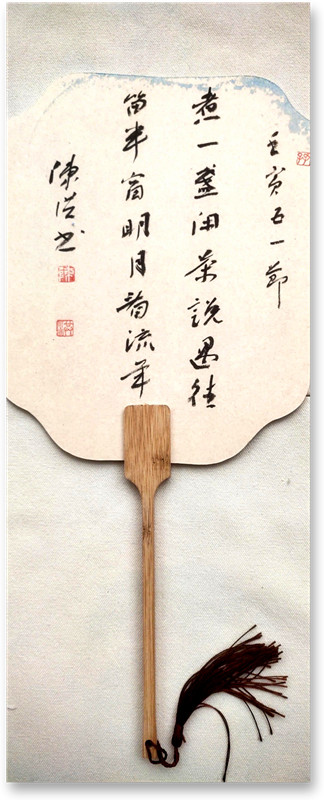 壬寅五一節
煮一盞闲茶說過往
留半窗明月韵流年
陳浩书